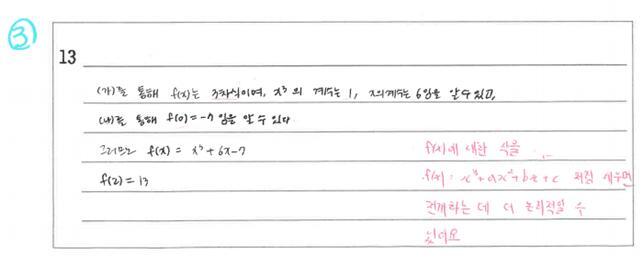 ③
13
(가)를 통해 f(x)는 3차식이며, x³의 계수는 1, x의계수는 6임을 알수있고,
(나)를 통해 f(0)=-7 임을 알 수 있다
그러므로 f(x) = x³+6x-7
f(2)=13
f(x)에 대한 식을
f(x)= x³+ax²+bx+c 처럼 세우면
전개하는 데 더 논리적일 수
있어요